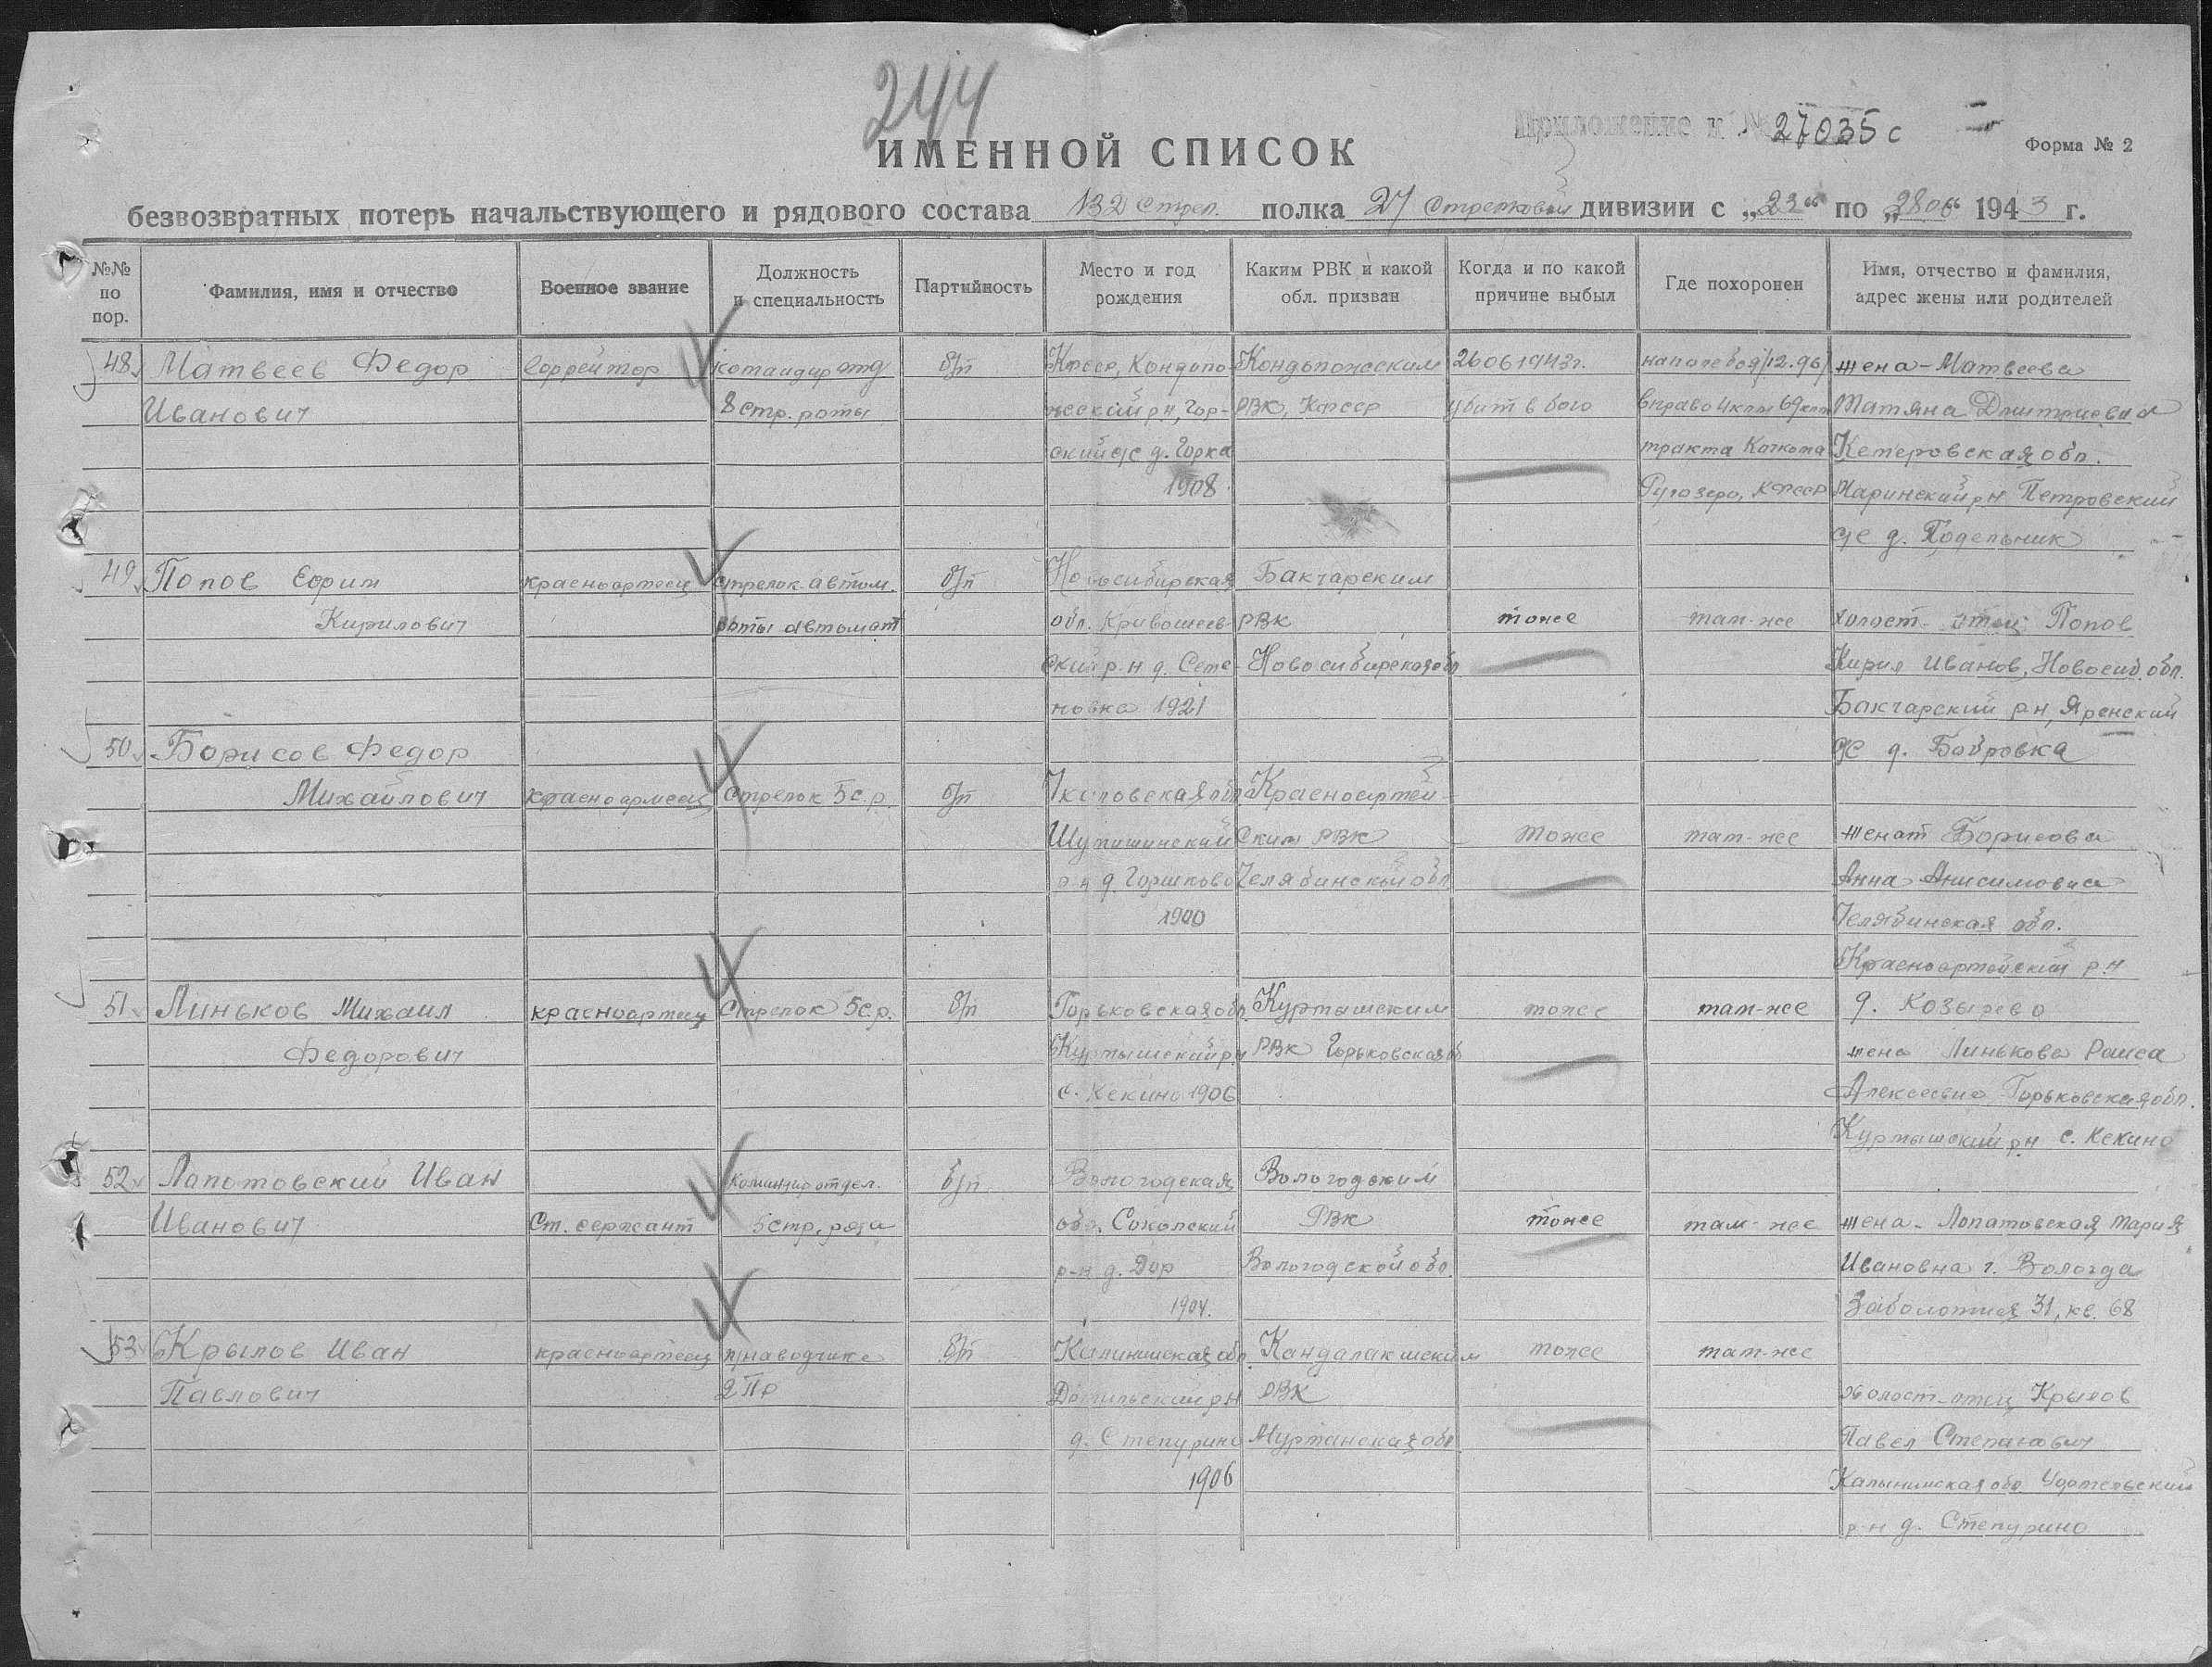 244
Приложение к № 27035с
ИМЕННОЙ СПИСОК
Форма № 2
безвозвратных потерь начальствующего и рядового состава 132 Стрел. полка 27 Стрелковой дивизии с „22“ по „28 06“ 1943 г.
№№ по пор.
Фамилия, имя и отчество
Военное звание
Должность и специальность
Партийность
Место и год рождения
Каким РВК и какой обл. призван
Когда и по какой причине выбыл
Где похоронен
Имя, отчество и фамилия, адрес жены или родителей
48 Матвеев Федор
Иванович
командир отд
8 стр. роты
б/п
ский с/с д. Горка
1908
Кондопожским
РВК,
26 06 1943 г.
убит в бою
на поле боя
вправо
тракта
Ругозеро, КФССР
жена - Матвеева
Татьяна Дмитриевна
Кемеровская обл.
Мариинский р-н Петровский
с/с д. Подельник
49 Попов Ефим
Кирилович
красноармеец
стрелок-автом.
роты автомат
б/п
Новосибирская
обл. Кривошеев-
ский р-н д. Семе-
новка 1921
Бакчарским
РВК
Новосибирская обл
тоже
там-же
холост- отец Попов
Кирил Иванов, Новосиб. обл.
Бакчарский р-н,
с/с д. Бобровка
50 Борисов Федор
Михайлович
красноармеец
Стрелок 5 с.р.
б/п
р-н д. Горшково
1900
Красноармей-
ским РВК
Челябинской обл
тоже
там-же
женат Борисова
Анна Анисимовна
Челябинская обл.
Красноармейский р-н
д. Козырево
51 Линьков Михаил
Федорович
красноармеец
Стрелок 5 с.р.
б/п
Горьковская обл.
Курмышский р-н
с. Кекино 1906
Курмышским
РВК Горьковская об
тоже
там-же
жена Линькова Раиса
Алексеевна Горьковская обл.
Курмышский р-н с. Кекино
52 Лапотовский Иван
Иванович
Ст. сержант
Командир отдел.
5 стр. роты
б/п
Вологодская
обл. Сокольский
р-н д. Дор
1904.
Вологодским
РВК
Вологодской обл.
тоже
там-же
жена - Лопатовская Мария
Ивановна г. Вологда
Заболотная 31, кв. 68
53 Крылов Иван
Павлович
красноармеец
б/п
Калининская обл
д. Степурино
1906
Кандалакшским
РВК
Мурманская обл
тоже
там-же
холост-отец Крылов
Павел Степанович
Калининская обл.
р-н д. Степурино